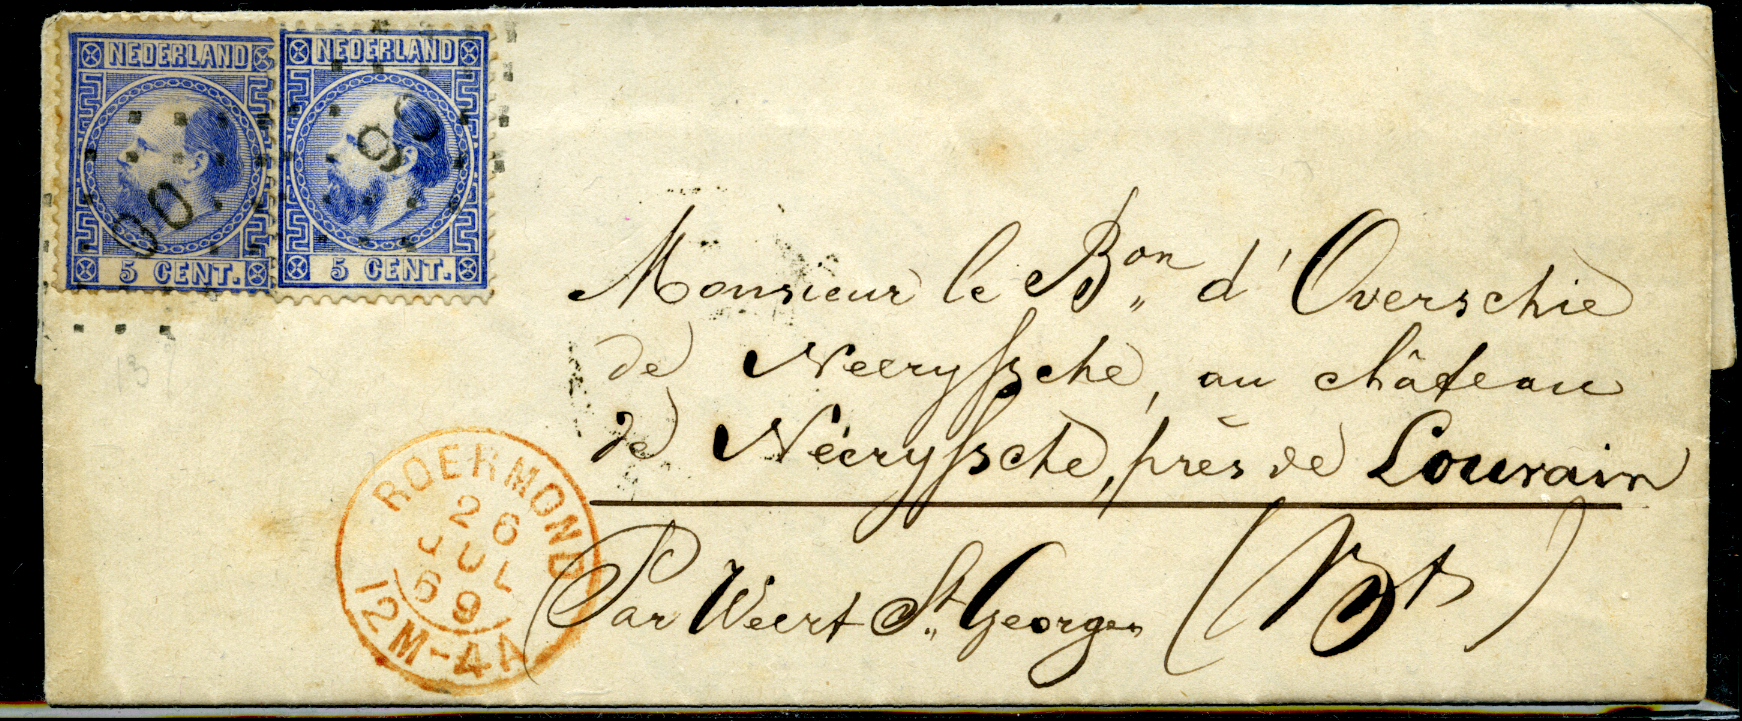 NEDERLAND NEDERLAND
5 CENT. 5 CENT.
90
Monsieur le Bon d'Overschie
de Neeryssche, au château
de Néeryssche, près de Louvain
(Par Weert St Georges
ROERMOND
26
JUL
69
12M-4A